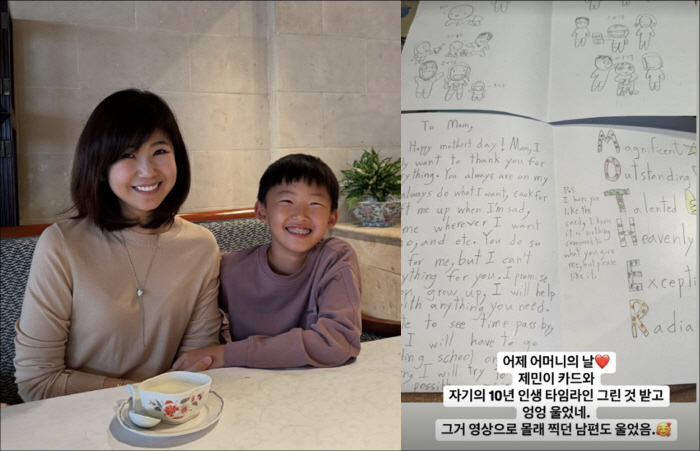 To Mom,
Happy mother's day! Mom, I
want to thank you for
ything. You always are on my
always do what I want, cook for
t me up when I'm sad,
me wherever I want
o, and etc. You do so
for me, but I can't
ything for you. I promise
grow up, I will help
ith anything you need.
te to see time pass by,
I will have to go
ding school or
I will try to
possib
Magnificent
Outstanding
Talented
Heavenly
Excepti
Radia
P.S
I hope you
like the
card, I know
it is nothing
compared to
what you give
me, but please
like it.
어제 어머니의 날❤️
제민이 카드와
자기의 10년 인생 타임라인 그린 것 받고
엉엉 울었네.
그거 영상으로 몰래 찍던 남편도 울었음.🥰